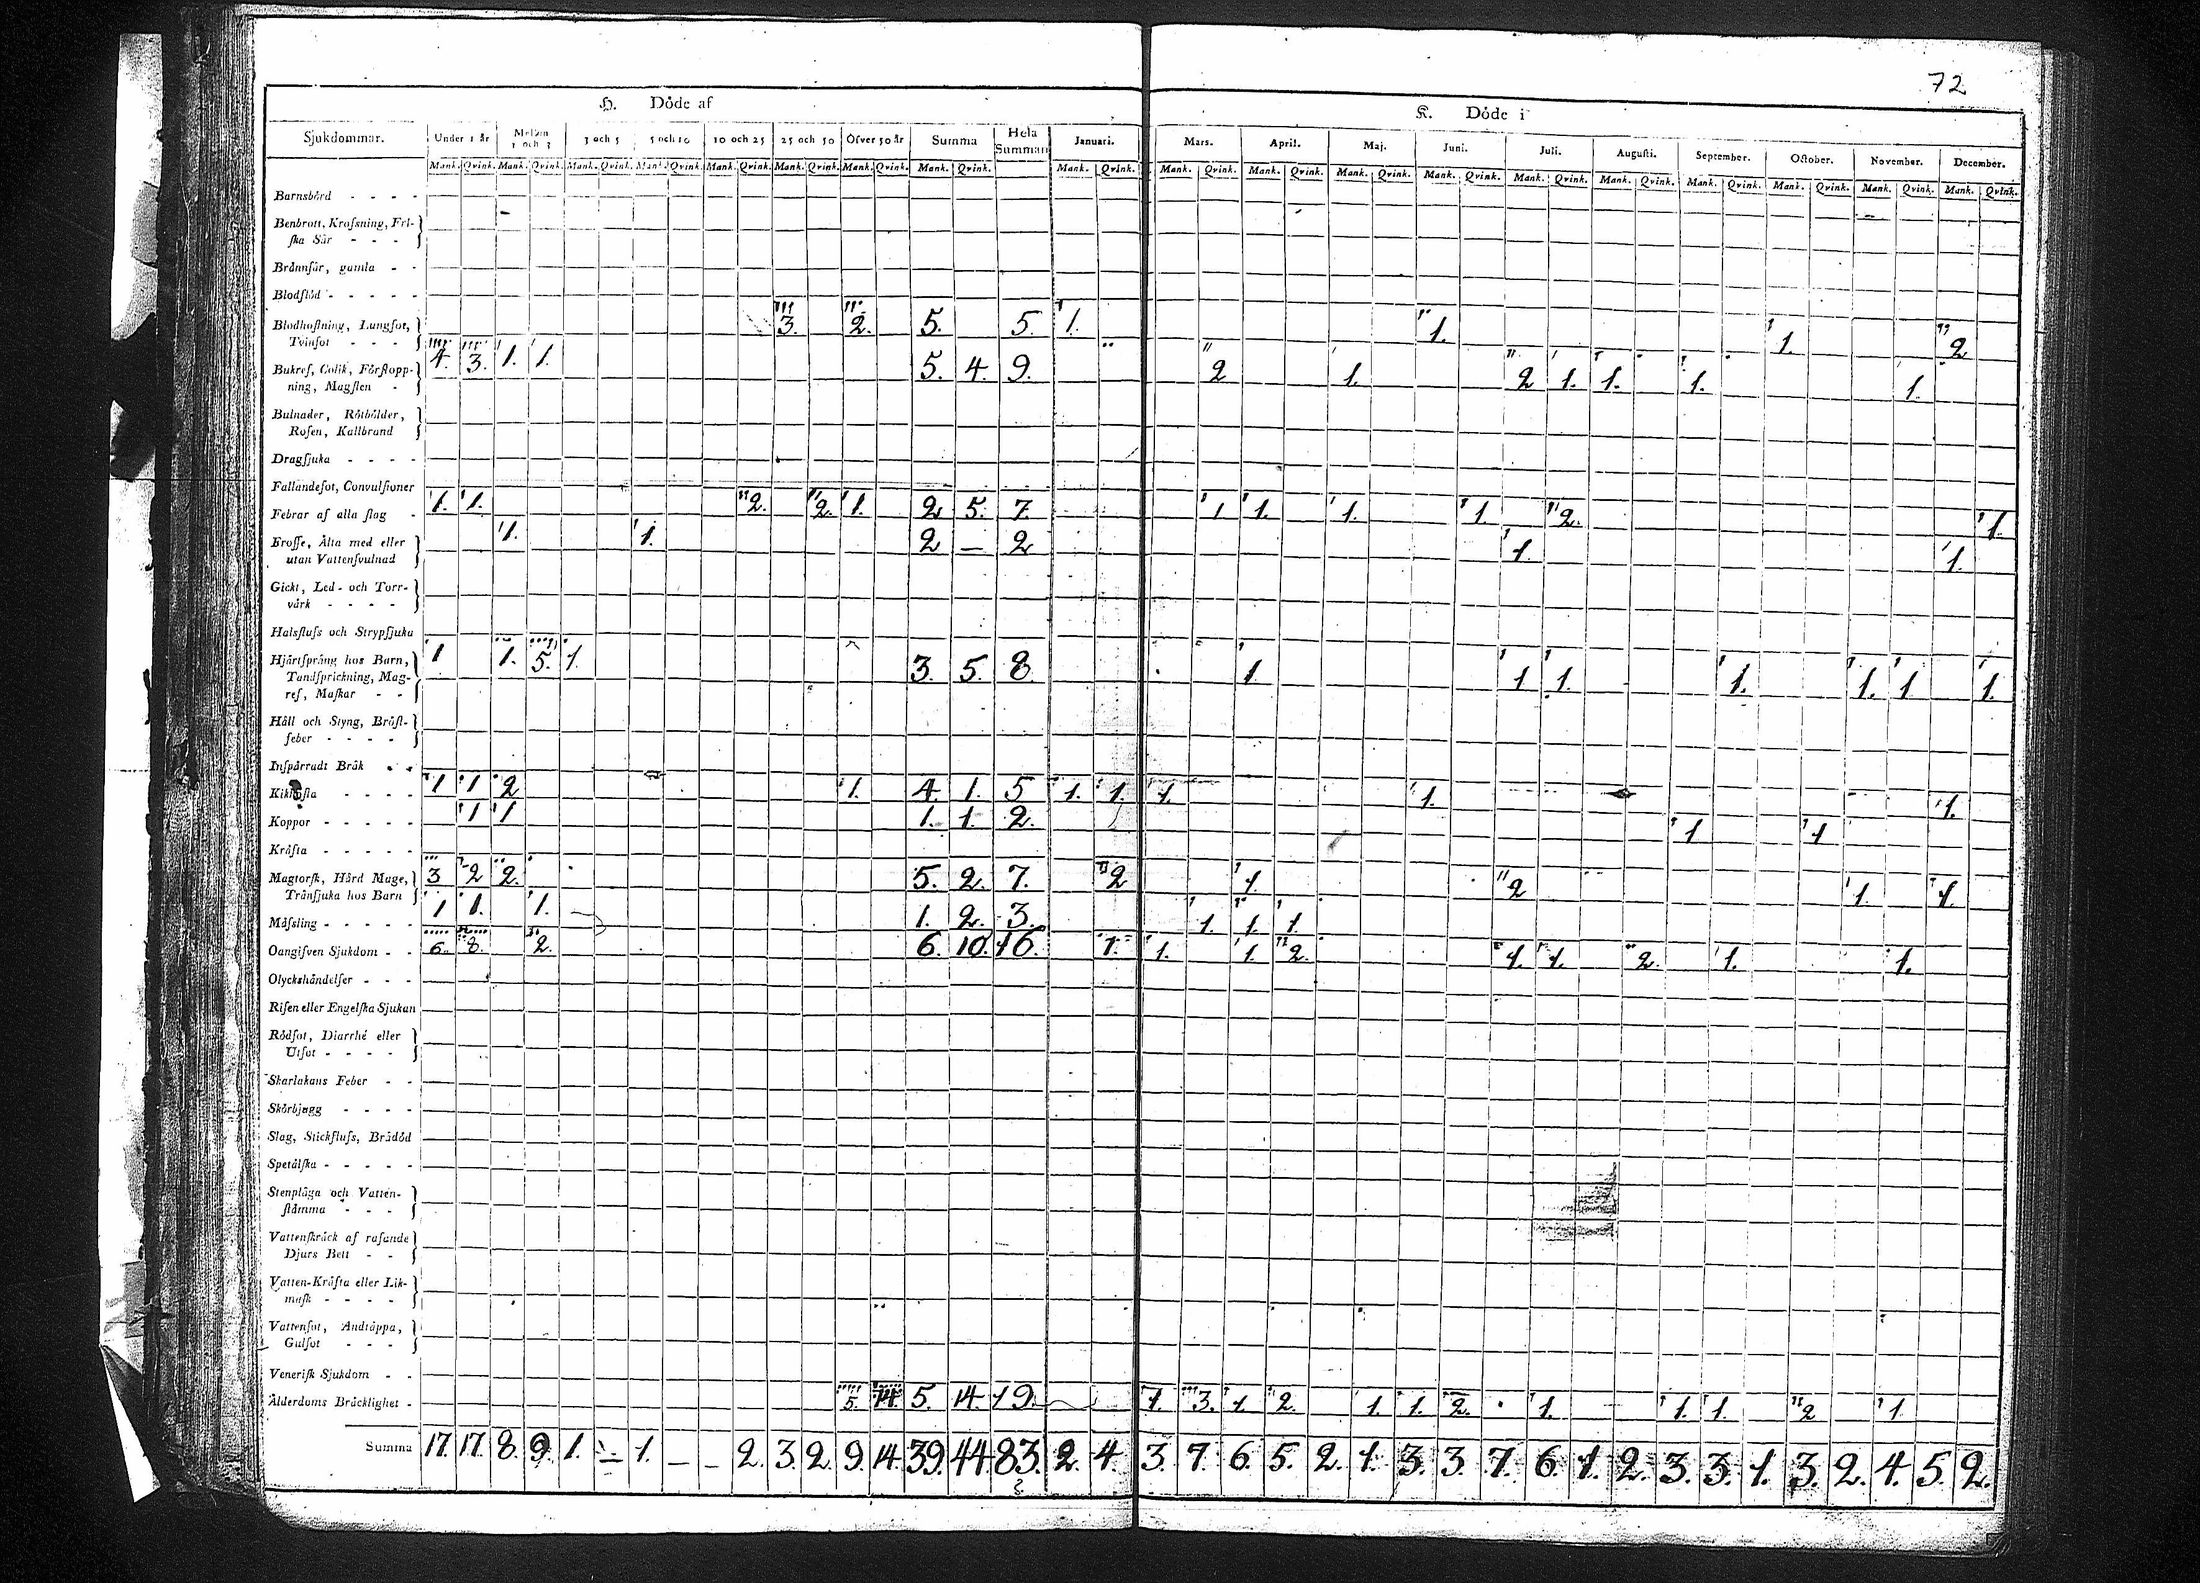 72
H. Döde af
K. Döde i
Sjukdommar. Under 1 år Mellan 1 och 3 3 och 5 5 och 10 10 och 25 25 och 50 Öfver 50 år Summa Hela Summan Januari. Mars. April. Maj. Juni. Juli. Augusti. September. October. November. December.
Mank. Qvink. Mank. Qvink. Mank. Qvink. Mank. Qvink. Mank. Qvink. Mank. Qvink. Mank. Qvink. Mank. Qvink. Mank. Qvink. Mank. Qvink. Mank. Qvink. Mank. Qvink. Mank. Qvink. Mank. Qvink. Mank. Qvink. Mank. Qvink. Mank. Qvink. Mank. Qvink. Mank. Qvink.
Barnsbörd - - - -
Benbrott, Krosſning, Fri-
ſka Sår - - -
Brånnſår, gamla - -
Blodflöd - - - - -
Blodhoſtning, Lungſot,
Tvinſot - - - 3. 2. 5. 5. 1. 1. 1. 2
Bukref, Colik, Förſtopp-
ning, Magſten - 4. 3. 1. 1. 5. 4. 9. 2 1. 2 1. 1. 1. 1.
Bulnader, Rötbölder,
Roſen, Kallbrand
Dragſjuka - - - -
Fallandeſot, Convulſioner
Febrar af alla ſlag - 1. 1. 2. 2. 1. 2 5. 7. 1 1. 1. 1. 2. 1.
Froſſe, Ålta med eller
utan Vattenſvulnad 1. 1. 2 — 2 1. 1.
Gickt, Led- och Torr-
vårk - - - -
Halsfluſs och Strypſjuka
Hjårtſprång hos Barn,
Tandſprickning, Mag-
ref, Maſkar - - 1 1. 5. 1. 3. 5. 8 1. 1 1. 1. 1. 1 1.
Håll och Styng, Bröſt-
feber - - - -
Inſpårradt Bråk - -
Kikhoſta - - - - 1 1 2 1. 4. 1. 5 1. 1. 1. 1. 1.
Koppor - - - - - 1 1 1. 1. 2. 1 1
Kråfta - - - - -
Magtorſk, Hård Mage,
Trånſjuka hos Barn 3 2 2. 5. 2. 7. 2 1. 2 1. 1.
Måſsling - - - - - 1 1. 1. 1. 2. 3. 1. 1. 1.
Oangifven Sjukdom - - 6. 8. 2. 6. 10. 16. 1. 1. 1. 2. 1. 1. 2. 1. 1.
Olyckshåndelſer - - -
Riſen eller Engelſka Sjukan
Rödſot, Diarrhé eller
Utſot - - - -
Skarlakans Feber - -
Skörbjugg - - - -
Slag, Stickfluſs, Brådöd
Spetålſka - - - - -
Stenplåga och Vatten-
ſtåmma - - -
Vattenſkråck af raſande
Djurs Bett - -
Vatten-Kråfta eller Lik-
maſk - - - -
Vattenſot, Andtåppa,
Gulſot - - -
Veneriſk Sjukdom - -
Ålderdoms Bråcklighet - 5. 14. 5. 14. 19. 1. 3. 1. 2. 1. 1. 2. 1. 1. 1. 2 1.
Summa 17. 17. 8. 9. 1. — 1. — — 2. 3. 2. 9. 14. 39. 44. 83. 2. 4. 3. 7. 6. 5. 2. 1. 3. 3. 7. 6. 1. 2. 3. 3. 1. 3. 2. 4. 5. 2.